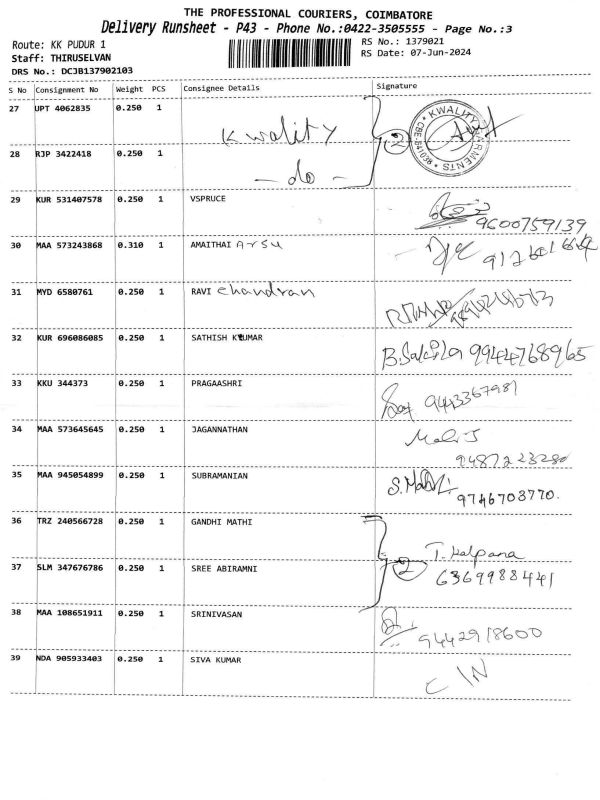 THE PROFESSIONAL COURIERS, COIMBATORE
Delivery Runsheet - P43 - Phone No.:0422-3505555 - Page No.:3
Route: KK PUDUR 1
RS No.: 1379021
Staff: THIRUSELVAN
RS Date: 07-Jun-2024
DRS No.: DCJB137902103
S No Consignment No Weight PCS Consignee Details Signature
27 UPT 4062835 0.250 1 Kwality
2
KWALITY GARMENTS
28 RJP 3422418 0.250 1 - do -
29 KUR 531407578 0.250 1 VSPRUCE 9600759139
30 MAA 573243868 0.310 1 AMAITHAI Arsu
31 MYD 6580761 0.250 1 RAVI chandran
32 KUR 696086085 0.250 1 SATHISH KUMAR 9944768965
33 KKU 344373 0.250 1 PRAGAASHRI 9443367981
34 MAA 573645645 0.250 1 JAGANNATHAN
9487223280
35 MAA 945054899 0.250 1 SUBRAMANIAN
9746703770.
36 TRZ 240566728 0.250 1 GANDHI MATHI T. Kalpana
37 SLM 347676786 0.250 1 SREE ABIRAMNI 2 6369988441
38 MAA 108651911 0.250 1 SRINIVASAN 9442918600
39 NDA 905933403 0.250 1 SIVA KUMAR C IN